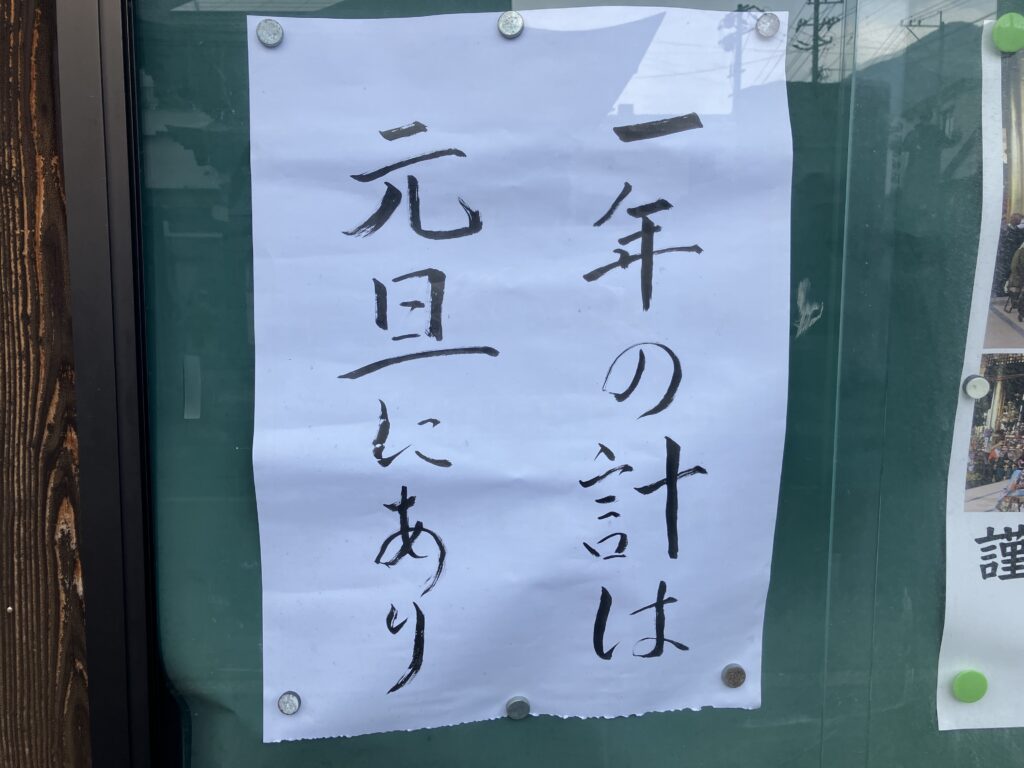 一年の計は
元旦にあり
謹